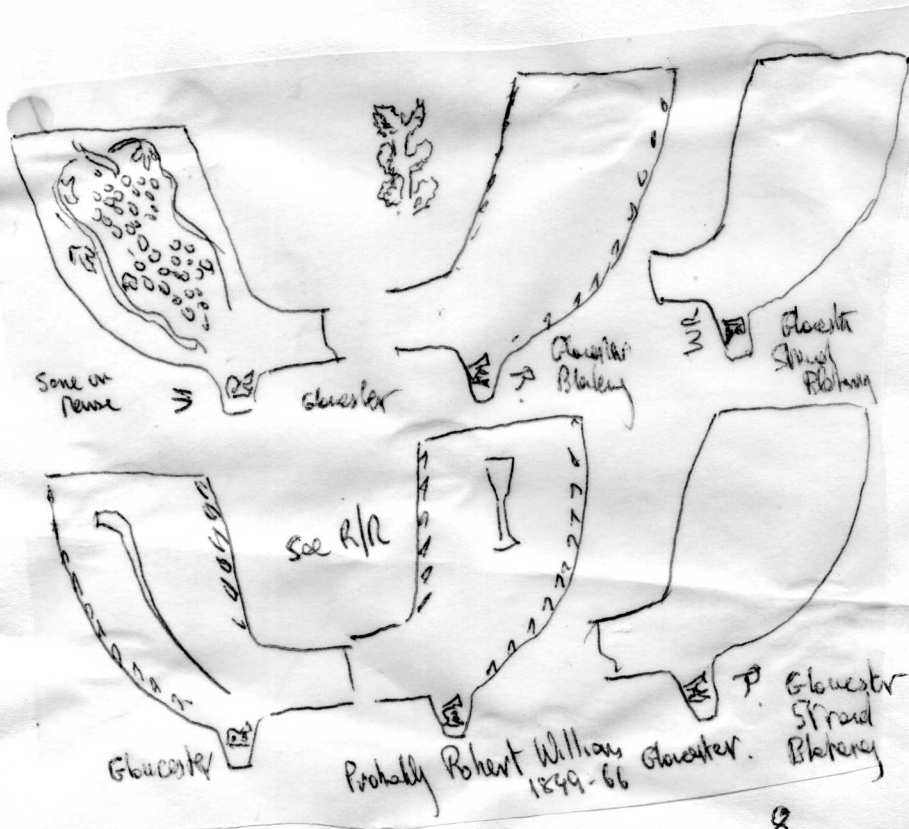 Same on
W
R
Gloucester
W
R
Gloucester
Blakeney
WR
Gloucester
Stroud
Blakeney
See R/R
Gloucester
Probably Robert William Gloucester.
1849-66
W
R
Gloucester
Stroud
Blakeney
8